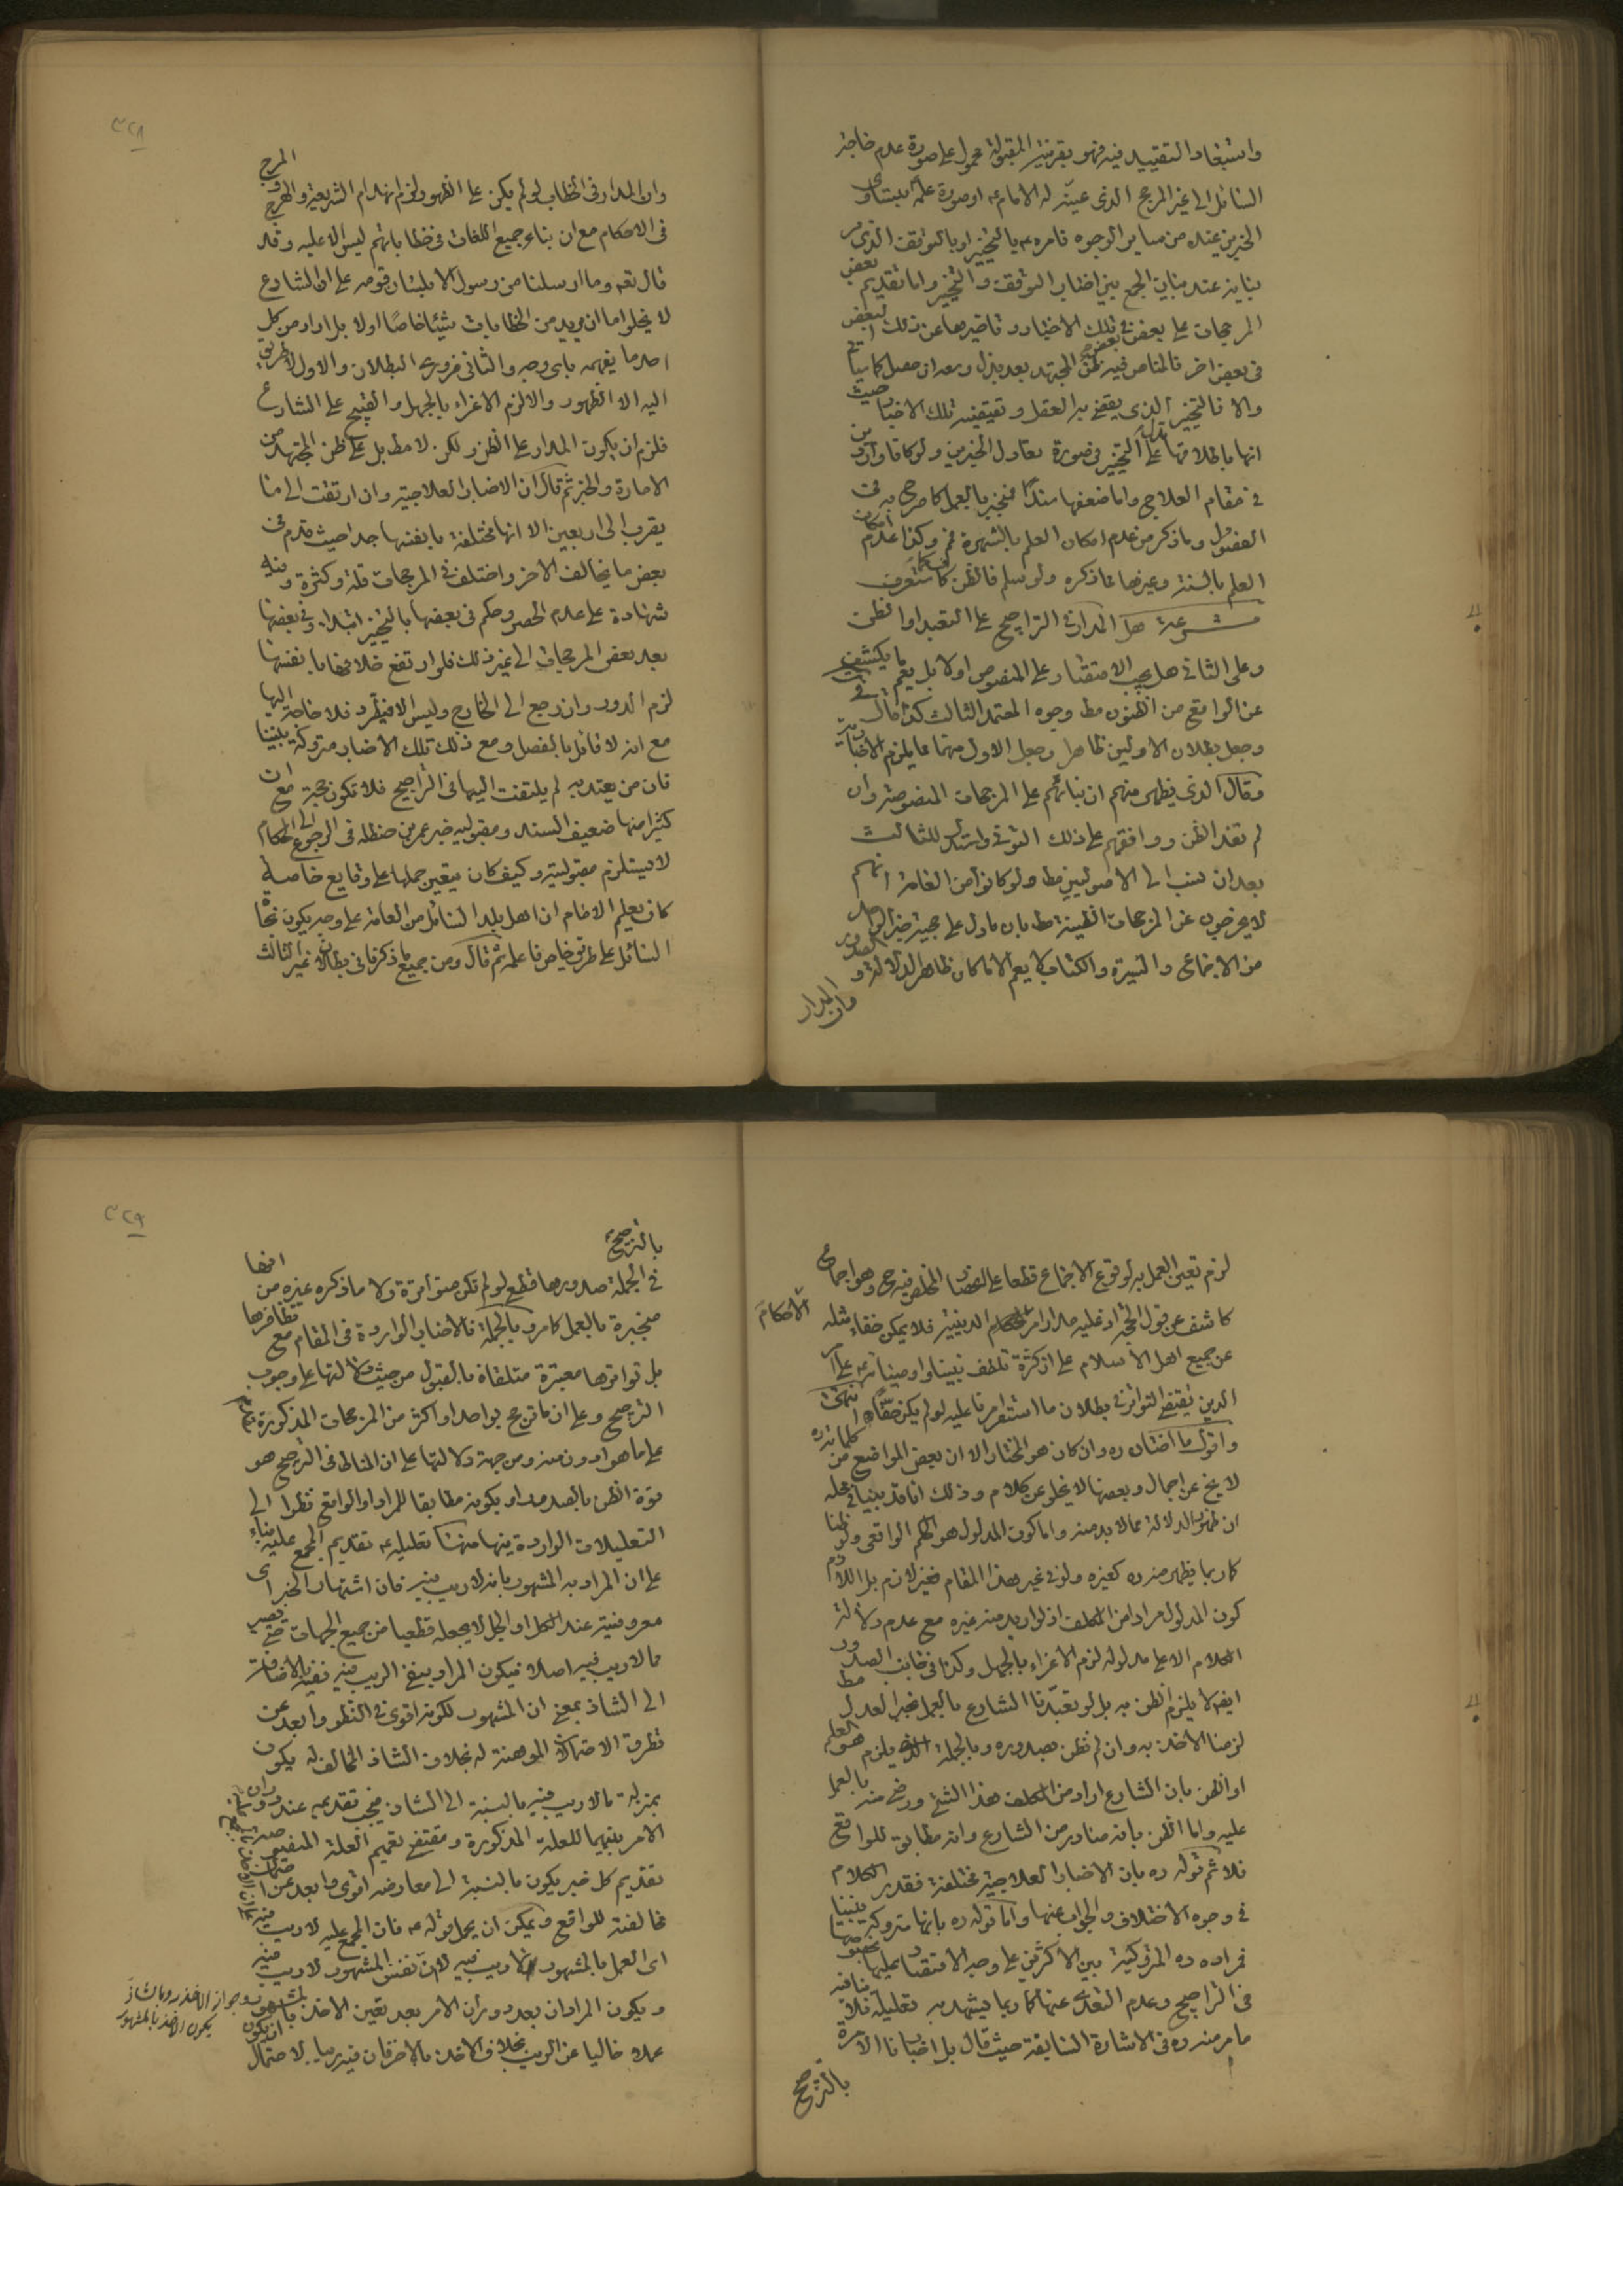 واستبعاد التقييد فيه فهو بقرينة المقبولة محمول على صورة عدم
السائل الى غير المرجح الذى عينه له الامام ع او صورة علمه بتساوى
الخبرين عنده من ساير الوجوه فامره ع بالتخيير او بالتوقف الذى مر
بيانه عند بيان الجمع بين اخبار التوقف والتخيير واما تقديم بعض
المرجحات على بعض فى تلك الاخبار وتاخيرها عن ذلك البعض
فى بعض اخر فالمناص فيه ظن المجتهد بعد بذل وسعه ان حصل كما سياتى
والا فالتخيير الذى يقضى به العقل وتقتضيه تلك الاخبار حيث
انها باطلاقها تدل على التخيير فى صورة تعادل الخبرين ولو كانا واردين
فى مقام العلاج واما ضعفها سندا فمنجبر بالعمل كما صرح به فى
الفصول وما ذكر من عدم امكان العلم بالشهرة فمم وكذا عدم امكان
العلم بالسنة وغيرها مما ذكره ولو سلم فالظن كاف كما ستعرف
شرعة هل المدار فى التراجيح على التعبد او الظن
وعلى الثانى هل يجب الاقتصار على المنصوص اولا بل يعم ما يكشف
عن الواقع من الظنون مط وجوه المعتمد الثالث كذا قال فى
وجعل بطلان الاولين ظاهرا وجعل الاول منهما مما يلزم الاخبارية
وقال الذى يظهر منهم ان بنائهم على المرجحات المنصوصة وان
لم تفد الظن ووافقهم على ذلك التونى واستدل للثالث
بعد ان نسب الى الاصوليين مط ولو كانوا من العامة انهم
لا يخرجون عن المرجحات الظنية مط بان ما دل على حجية خبر الواحد
من الاجماع والسيرة والكتاب لا يعم الا ما كان ظاهر الدلالة و الصدور
وان المدار
٣٢٨
وان المدار فى الخطاب لو لم يكن على الظهور لزم انهدام الشريعة والهرج والمرج
فى الاحكام مع ان بناء جميع اللغات فى خطاباتهم ليس الا عليه وقد
قال تعه وما ارسلنا من رسول الا بلسان قومه على ان الشارع
لا يخلوا اما ان يريد من الخطابات شيئا خاصا اولا بل اراد من كل
احد ما يفهمه باى وجه والثانى ضرورى البطلان والاول لا طريق
اليه الا الظهور والا لزم الاغراء بالجهل والقبيح على الشارع
فلزم ان يكون المدار على الظن ولكن لا مط بل على ظن المجتهد من
الامارة والخبر ثم قال ان الاخبار العلاجية وان ارتقت الى ما
يقرب الى اربعين الا انها مختلفة بانفسها جدا حيث قدم فى
بعض ما يخالف الاخر واختلف فى المرجحات قلة وكثرة وفيه
شهادة على عدم الحصر وحكم فى بعضها بالتخيير ابتداء وفى بعضها
بعد بعض المرجحات الى غير ذلك فلو ارتفع خلافها بانفسها
لزم الدور وان رجع الى الخارج وليس الا فيطرد فلا حاجة اليها
مع انه لا قائل بالفصل ومع ذلك تلك الاخبار متروكة بيننا
فان من يعتد به لم يلتفت اليها فى التراجيح فلا تكون حجة مع ان
كثيرا منها ضعيف السند ومقبولية خبر عمر بن حنظله فى الرجوع الى الحكام
لا يستلزم مقبوليته وكيف كان يتعين حملها على وقايع خاصة
كان يعلم الامام ان اهل بلد السائل من العامة على وجه يكون نجاة
السائل على طريق خاص فاعلمه ثم قال ومن جميع ما ذكرنا فى بطلان غير الثالث
لزم تعين العمل به لوقوع الاجماع قطعا على الخلص فيه ح وهو اجماع
كاشف عن قول الحجة اذ عليه مدار امر الاحكام الدينية فلا يمكن خفاء مثله
عن جميع اهل الاسلام على ان كثرة تلطف نبينا واوصيائه ع على امر
الدين يقتضى التواتر فى بطلان ما استقر امرنا عليه لو لم يكن حقا انتهى
واقول ما اختاره ره وان كان هو المختار الا ان بعض المواضع من كلماته ره
لا يخ عن اجمال وبعضها لا يخلو عن كلام وذلك انا قد بينا فى محله
ان ظهور الدلالة مما لا بد منه واما كون المدلول هو الحكم الواقعى ولو ظنا
كما ربما يظهر منه ره كغيره ولو فى غير هذا المقام فغير لازم بل اللازم
كون المدلول مرادا من المكلف اذ لو اريد منه غيره مع عدم دلالة
الكلام الا على مدلوله لزم الاغراء بالجهل وكذا فى جانب الصدور
ايضا لا يلزم الظن به بل لو تعبدنا الشارع بالعمل بخبر العدل مط
لزمنا الاخذ به وان لم نظن بصدوره وبالجملة الذى يلزم هو العلم
او الظن بان الشارع اراد من المكلف هذا الشئ ورضى منه بالعمل
عليه واما الظن بانه صادر من الشارع وانه مطابق للواقع
فلا ثم قوله ره بان الاخبار العلاجية مختلفة فقد مر الكلام
فى وجوه الاختلاف والجواب عنها واما قوله ره بانها متروكة بيننا
فمراده ره المتروكية بين الاكثرين على وجه الاقتصار عليها بخصوصها
فى التراجيح وعدم التعدى عنها كما ربما يشهد به تعليله فلا ينافيه
ما مر منه ره فى الاشارة السابقة حيث قال بل اخبارنا الآمرة
بالترجيح
الاحكام
٣٢٩
بالترجيح
فى الجملة صدورها قطعى لو لم تكن متواترة ولا ما ذكره غيره من انها
منجبرة بالعمل كما مر وبالجملة فالاخبار الواردة فى المقام مع تظافرها
بل تواترها معتبرة متلقاة بالقبول من حيث دلالتها على وجوب
الترجيح وعلى ان ما ترجح بواحد او اكثر من المرجحات المذكورة
على ما هو ادون منه ومن جهة دلالتها على ان المناط فى الترجيح هو
قوة الظن بالصدور او بكونه مطابقا للمراد او الواقع نظرا الى
التعليلات الواردة فيها منها تعليله ع تقديم المجمع عليه بناء
على ان المراد به المشهور بانه لا ريب فيه فان اشتهار الخبر اى
معروفيته عند الكل او الجل لا يجعله قطعيا من جميع الجهات حتى يصير
مما لا ريب فيه اصلا فيكون المراد بنفى الريب فيه نفيه بالاضافة
الى الشاذ بمعنى ان المشهور لكونه اقوى فى النظر وابعد عن
تطرق الاحتمالات الموهنة له بخلاف الشاذ المخالف له يكون
بمنزلة ما لا ريب فيه بالنسبة الى الشاذ فيجب تقديمه عند دوران
الامر بينهما للعلة المذكورة ومقتضى تعميم العلة المنصوصة
تقديم كل خبر يكون بالنسبة الى معارضه اقوى وابعد عن احتمال
مخالفته للواقع ويمكن ان يحمل قوله ع فان المجمع عليه لا ريب فيه
اى العمل بالمشهور لا ريب فيه لان نفس المشهور لا ريب فيه
ويكون المراد ان بعد دوران الامر بعد تعين الاخذ بالمشهور وجواز الاخذ به وبالشاذ
يكون الاخذ بالمشهور
عملا خاليا عن الريب بخلاف الاخذ بالاخر فان فيه ريبا لاحتمال ان يكون